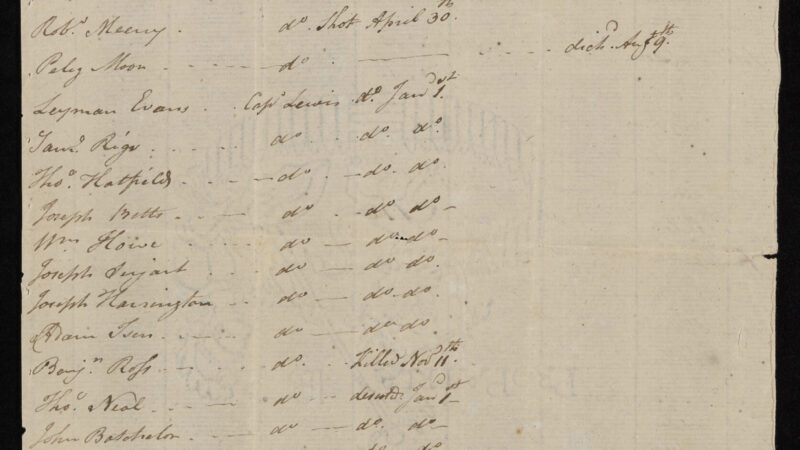 Robt. Meeny . do. Shot April 30th.
Peleg Moon do. dischd. Augt 9th.
Leyman Evans . Capt. Lewis do. Jand 1st
Saml. do. do. do.
Tho. Hatfield do. do. do.
Joseph Betts do. do. do
Wm. Howe do do. do
Joseph do do. do.
Joseph Harrington do do. do.
Adam do do do.
Benjn. Ross do. Killed Novr. 11th.
Tho. Neal do desertd. Jand. 1st
John Batchelor do do. do
do.